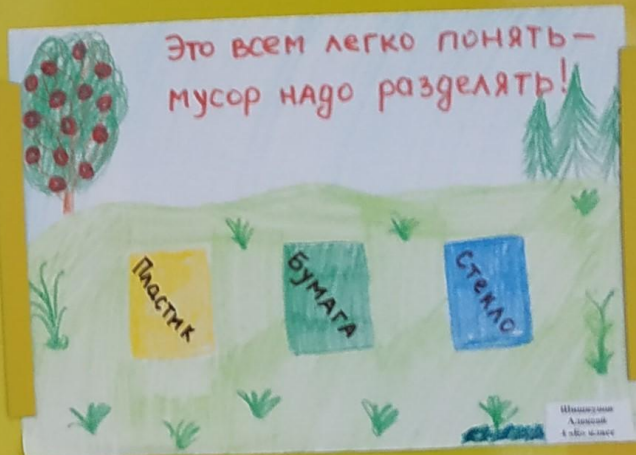 Это всем легко понять –
мусор надо разделять!
Пластик
Бумага
Стекло
класс